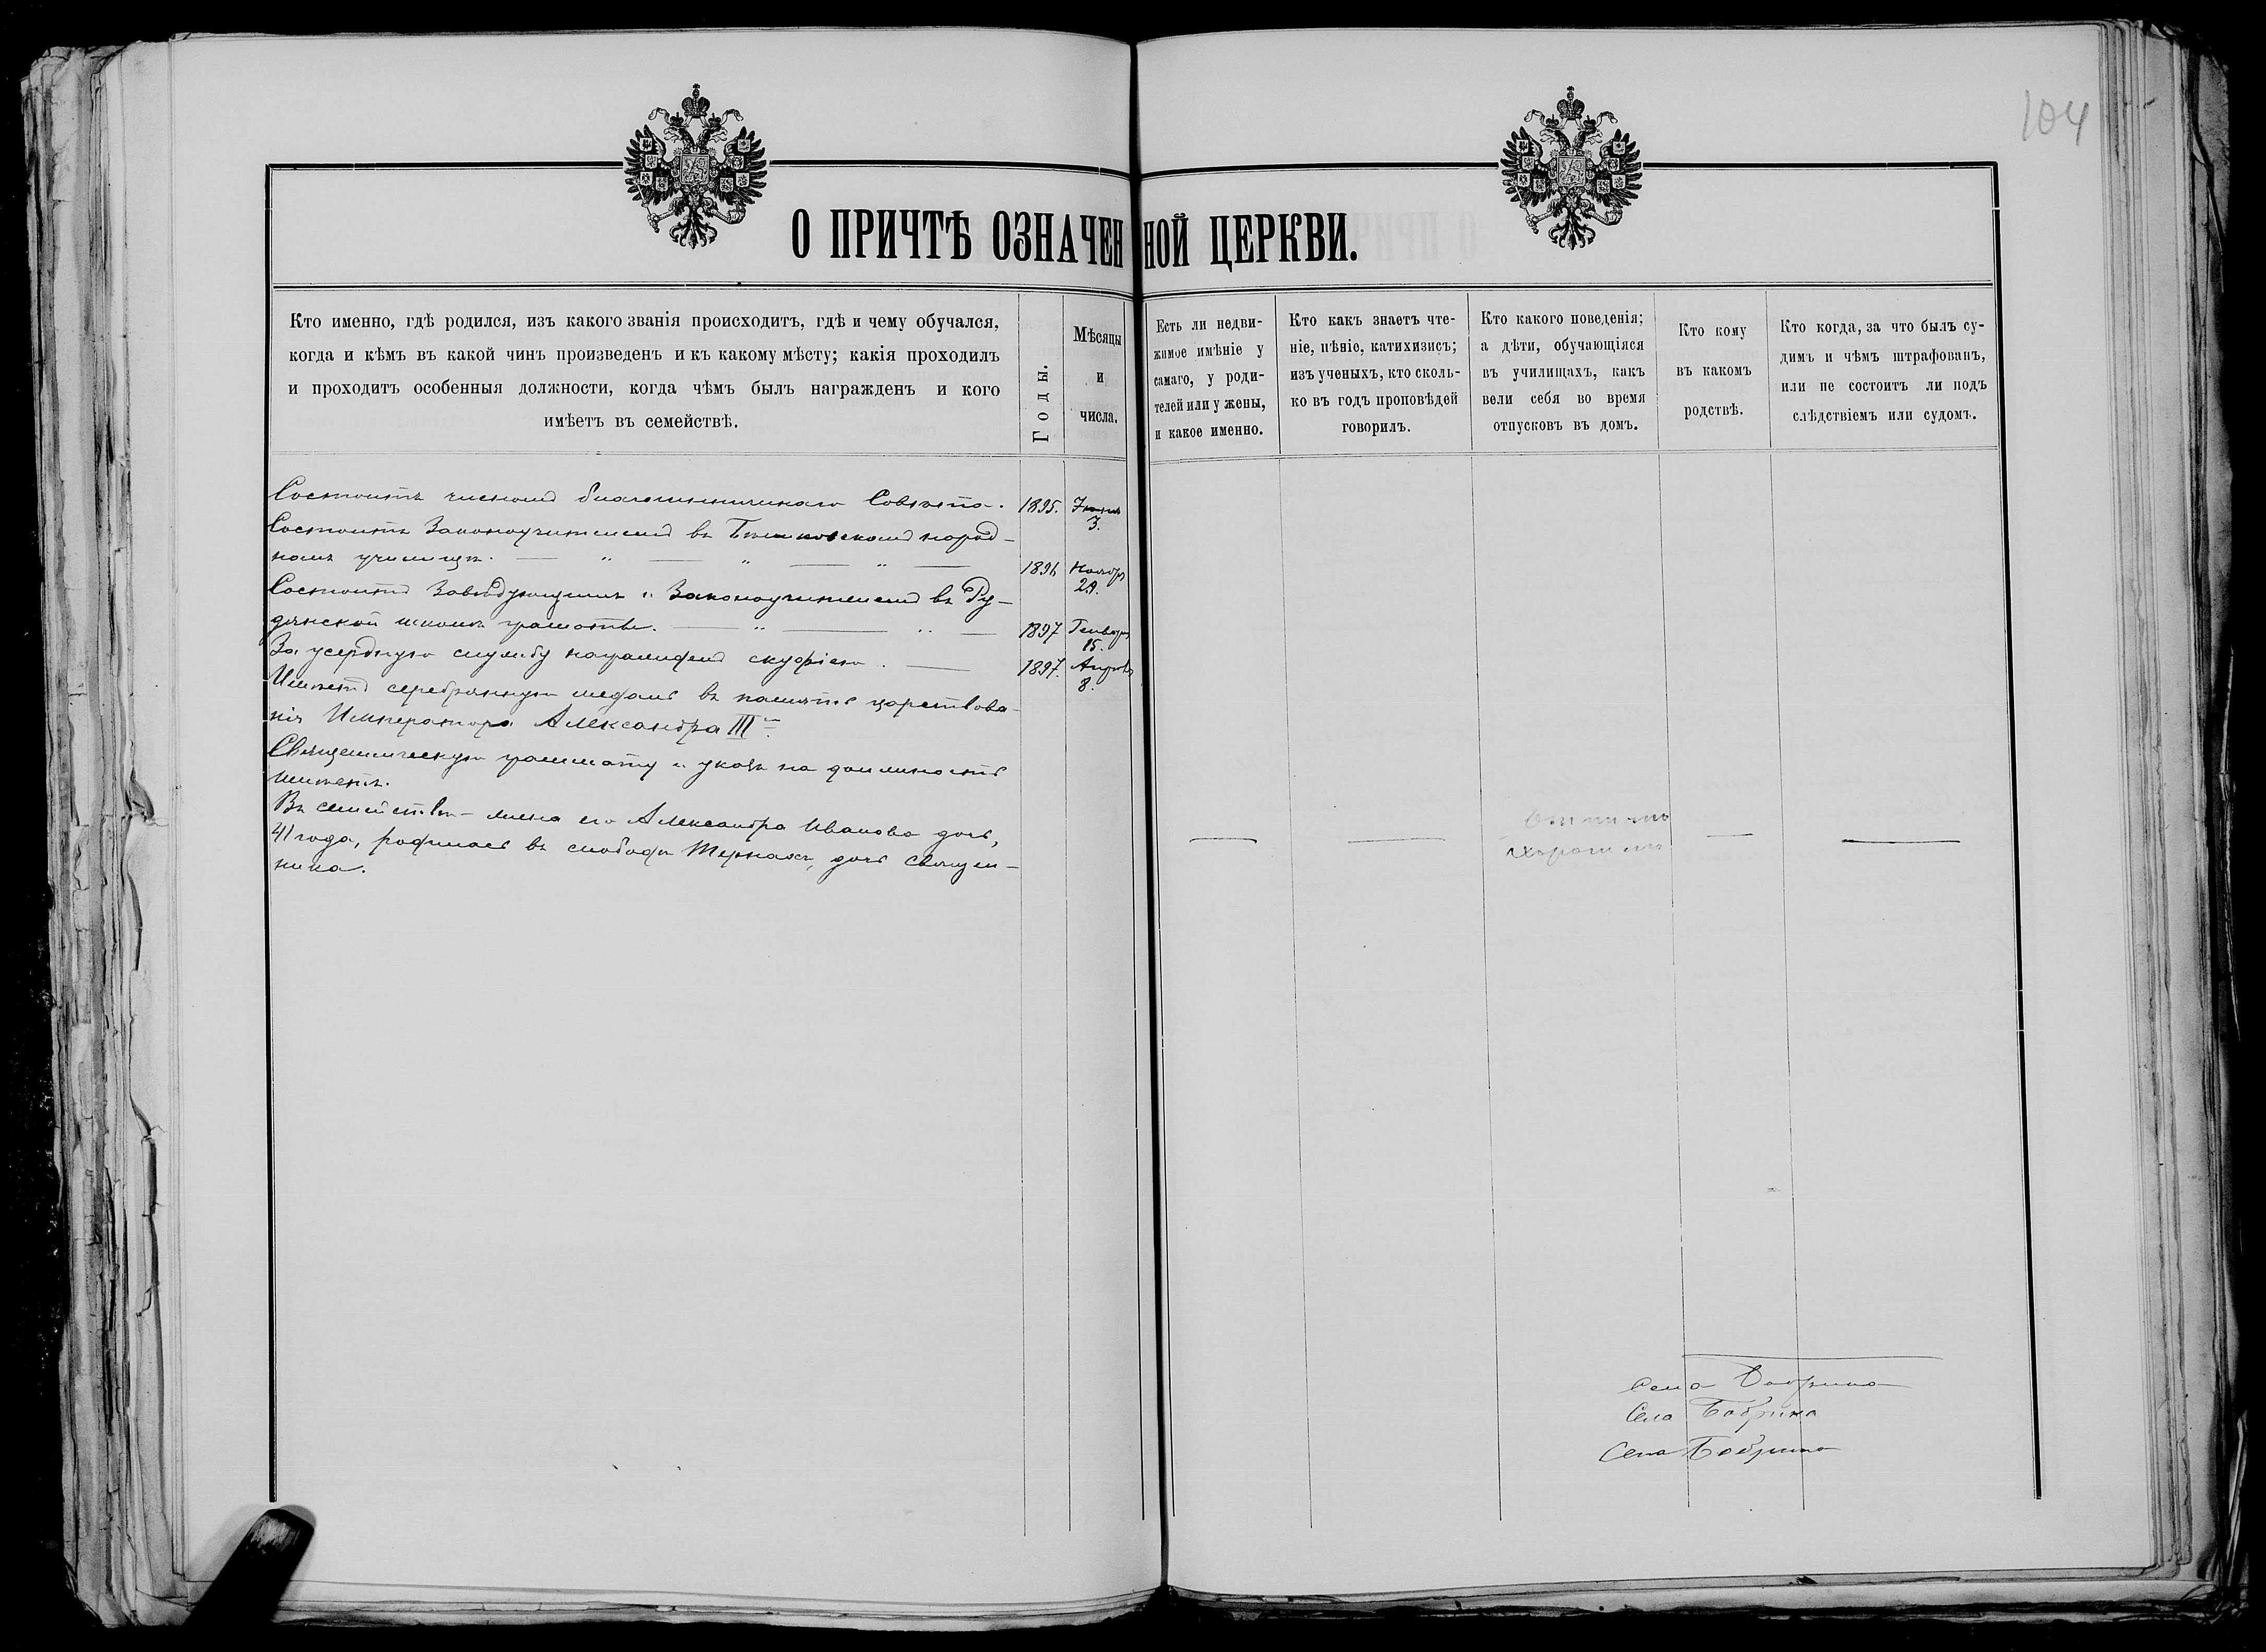 104
О ПРИЧТѢ ОЗНАЧЕННОЙ ЦЕРКВИ.
Кто именно, гдѣ родился, изъ какого званія происходитъ, гдѣ и чему обучался,
когда и кѣмъ въ какой чинъ произведенъ и къ какому мѣсту; какія проходилъ
и проходитъ особенныя должности, когда чѣмъ былъ награжденъ и кого
имѣетъ въ семействѣ.
Годы.
Мѣсяцы
и
числа.
Есть ли недви-
жимое имѣніе у
самаго, у роди-
телей или у жены,
и какое именно.
Кто какъ знаетъ чте-
ніе, пѣніе, катихизисъ;
изъ ученыхъ, кто сколь-
ко въ годъ проповѣдей
говорилъ.
Кто какого поведенія;
а дѣти, обучающіяся
въ училищахъ, какъ
вели себя во время
отпусковъ въ домъ.
Кто кому
въ какомъ
родствѣ.
Кто когда, за что былъ су-
димъ и чѣмъ штрафованъ,
или не состоитъ ли подъ
слѣдствіемъ или судомъ.
Состоитъ членомъ благочинническаго Совѣта. 1895. 3.
Состоитъ Законоучителемъ въ народ-
номъ училищѣ. — „ — „ — „ — 1896 Ноября 29.
Состоитъ Завѣдующимъ и Законоучителемъ въ Ру-
дянской школѣ грамоты. — „ — „ — 1897 Генваря 15.
За усердную службу награжденъ скуфіею. — 1897. Апрѣля 8.
Имѣетъ серебрянную медаль въ память царствова-
нія Императора Александра III
Священническую граммату и указъ на должность
имѣетъ.
Въ семействѣ – жена его Александра Иванова дочь,
41 года, родилась въ слободѣ Тернахъ, дочь священ-
ника.
отлично
хорошаго
Села Бобрика
Села Бобрика
Села Бобрика